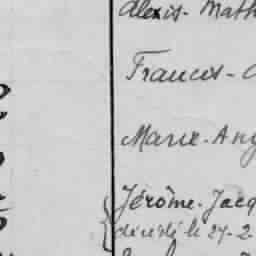 Alexis-Math
Francis-
Marie-Ang
Jérôme-Jacq
décédé le 27-2